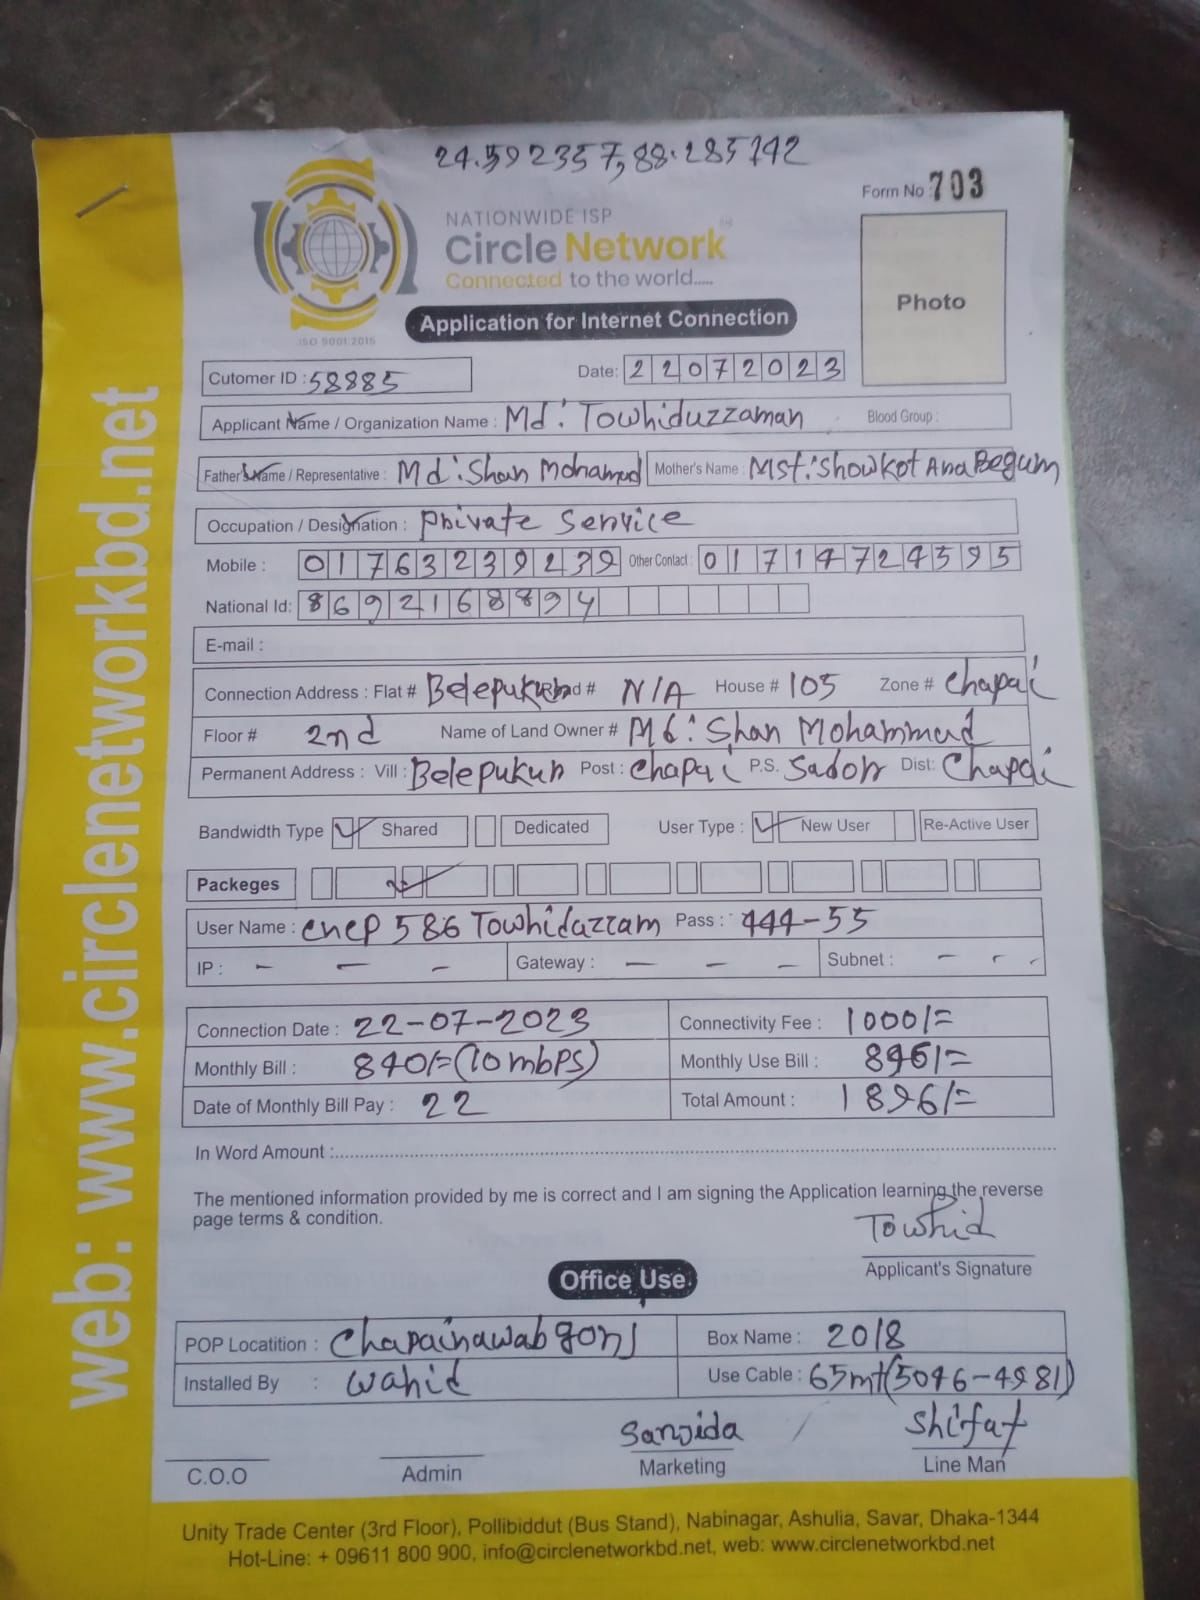 24.592357,88.285742
Form No : 703
NATIONWIDE ISP
Circle Network
Connected to the world.....
ISO 9001:2015
Photo
Application for Internet Connection
Cutomer ID : 58885
Date: 22072023
Applicant Name / Organization Name : Md: Towhiduzzaman Blood Group :
Father's Name / Representative : Md: Shan Mohamad Mother's Name : Mst: Showkot Ana Begum
Occupation / Designation : Private Service
Mobile : 01763239239 Other Contact : 01714724595
National Id: 8692168894
E-mail :
Connection Address : Flat # Belepukur Road # N/A House # 105 Zone # Chapai
Floor # 2nd Name of Land Owner # Md: Shan Mohammad
Permanent Address : Vill : Belepukur Post : Chapai P.S. Sador Dist: Chapai
Bandwidth Type Shared Dedicated User Type : New User Re-Active User
Packeges
User Name : cncp 586 Towhidazzam Pass : 444-55
IP : - - - Gateway : - - - Subnet : - - -
Connection Date : 22-07-2023 Connectivity Fee : 1000/=
Monthly Bill : 840/= (10 mbps) Monthly Use Bill : 896/=
Date of Monthly Bill Pay : 22 Total Amount : 1896/=
In Word Amount :
The mentioned information provided by me is correct and I am signing the Application learning the reverse
page terms & condition.
Towhid
Applicant's Signature
Office Use
POP Locatition : Chapainawabgonj Box Name : 2018
Installed By : Wahid Use Cable : 65mt(5046-4981)
Sanjida Shifat
C.O.O Admin Marketing Line Man
Unity Trade Center (3rd Floor), Pollibiddut (Bus Stand), Nabinagar, Ashulia, Savar, Dhaka-1344
Hot-Line: + 09611 800 900, info@circlenetworkbd.net, web: www.circlenetworkbd.net
web: www.circlenetworkbd.net